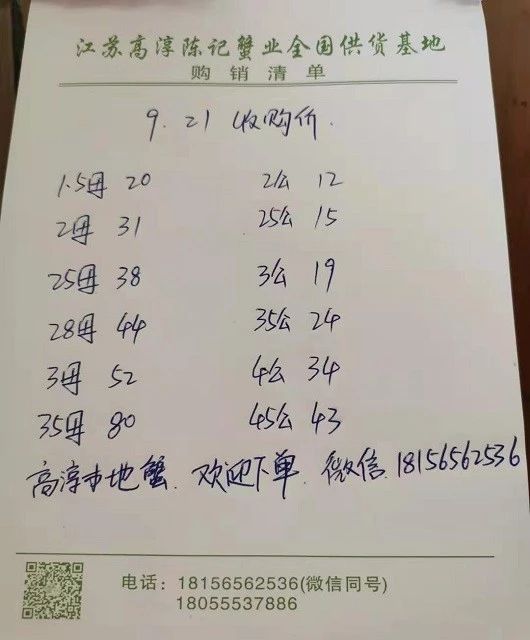 江苏高淳陈记蟹业全国供货基地
购销清单
9.21 收购价.
1.5母 20 2公 12
2母 31 25公 15
25母 38 3公 19
28母 44 35公 24
3母 52 4公 34
35母 80 45公 43
高淳本地蟹. 欢迎下单. 微信. 18156562536
电话: 18156562536(微信同号)
18055537886